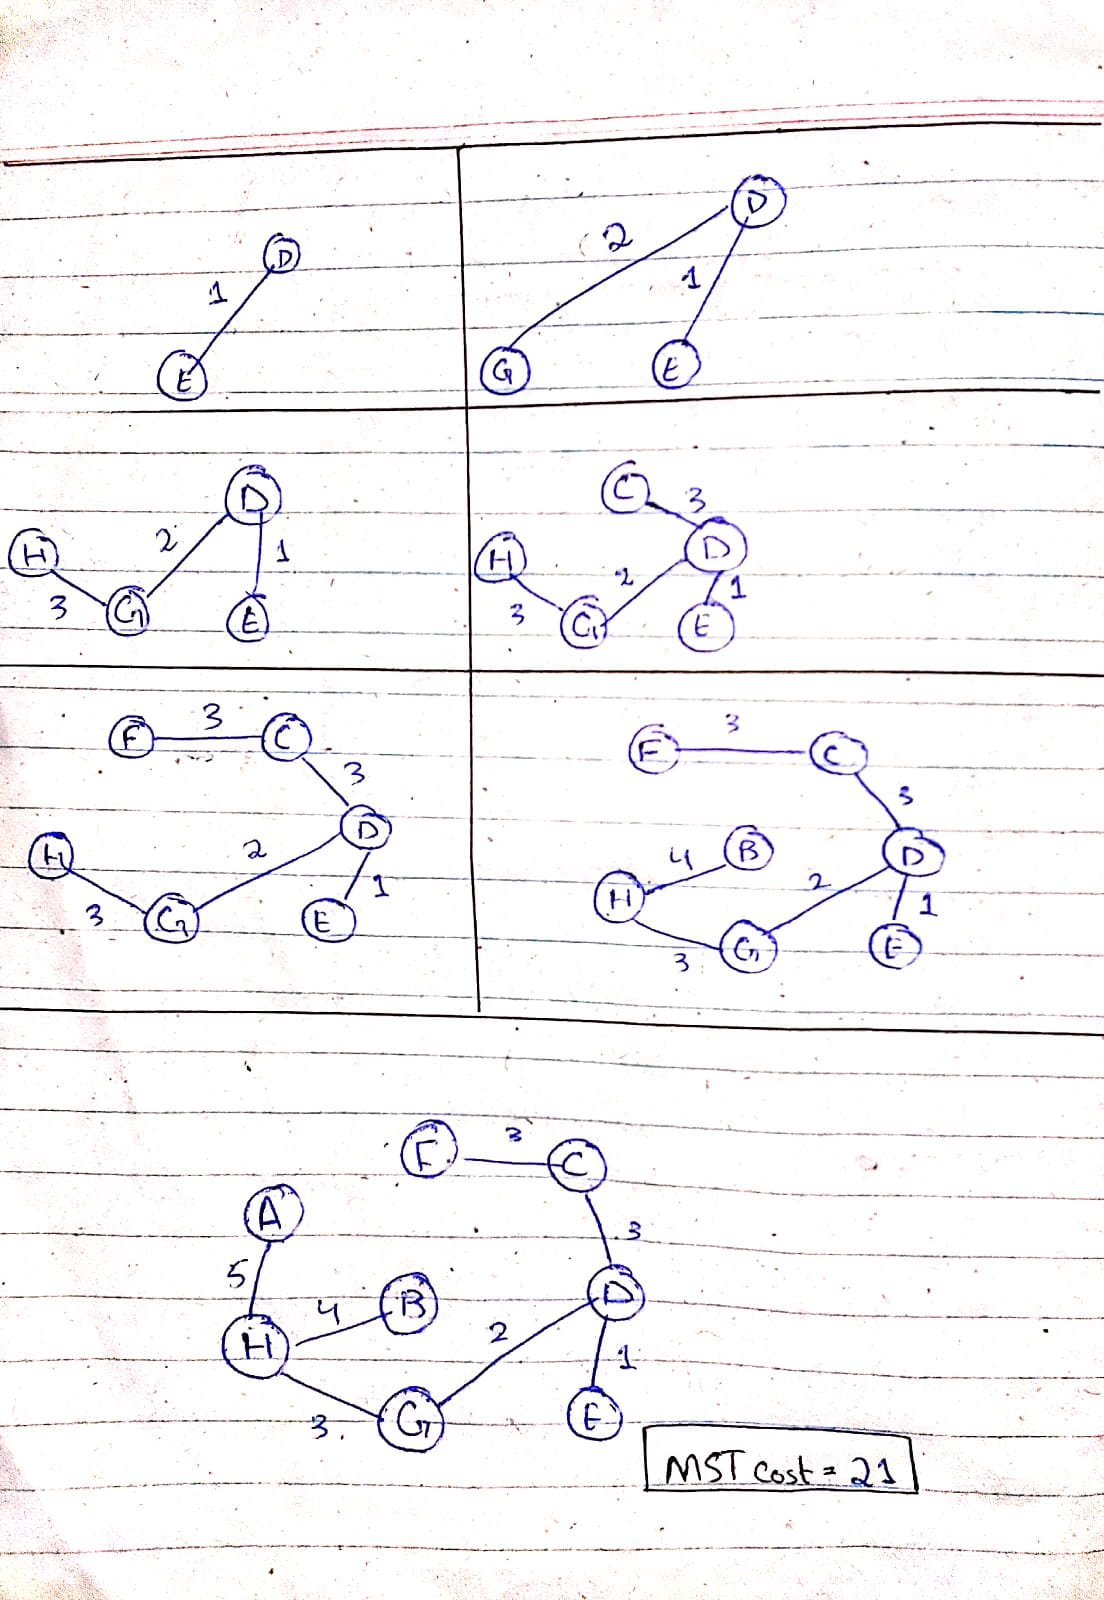 D
1
E
D
2
1
G
E
D
2
1
H
3
G
E
C
3
D
H
2
1
3
G
E
F 3 C
3
D
H
2
1
3
G
E
F 3 C
3
D
4 B
H
2
1
G
3
E
F 3 C
A
3
5
D
4 B
H
2
1
G
3.
E
MST cost = 21